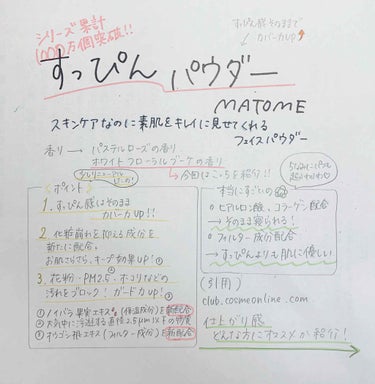 シリーズ累計
1000万個突破!!
すっぴん感そのままで
カバー力UP↑
すっぴんパウダー
MATOME
スキンケアなのに素肌をキレイに見せてくれる
フェイスパウダー
香り → パステルローズの香り
ホワイトフローラルブーケの香り
→ 今回はこっちを紹介!!
〈ポイント〉
1. すっぴん感はそのまま
カバー力UP!!
2. 化粧崩れを抑える成分を
新たに配合。
お肌さらさら、キープ効果UP!
3. 花粉・PM2.5・ホコリなどの
汚れをブロック!ガード力UP!
① ノイバラ果実エキス(保湿成分)を新配合
② 大気中に浮遊する直径2.5μm以下の物質
③ オウゴン根エキス(フィルター成分)を新配合
本当にすごいの
○ ヒアルロン酸、コラーゲン配合
→ そのまま寝られる!
○ フィルター成分配合
→ すっぴんよりも肌に優しい
(引用)
club.cosmeonline.com
仕上がり感
どんな方にオススメか紹介!